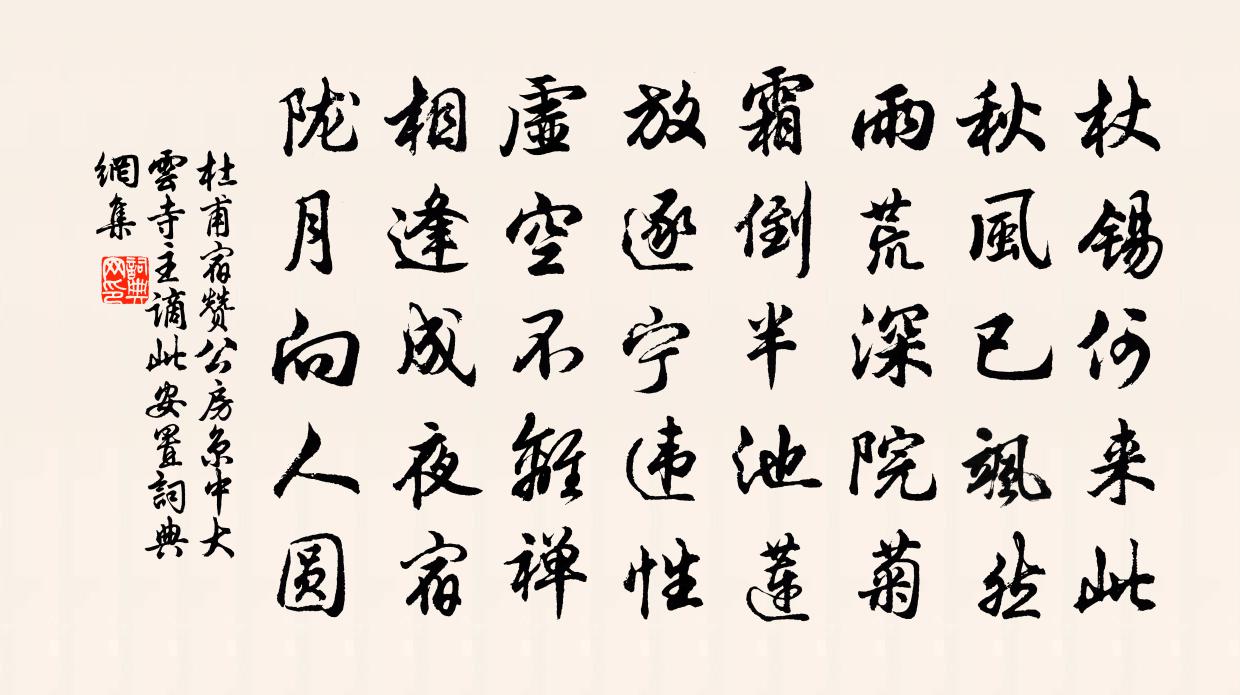 杖锡何来此
秋風已颯然
雨荒深院菊
霜倒半池蓮
放逐宁违性
虛空不離禅
相逢成夜宿
陇月向人圆
杜甫宿赞公房京中大
雲寺主谪此安置詞典
網集
詞典网印